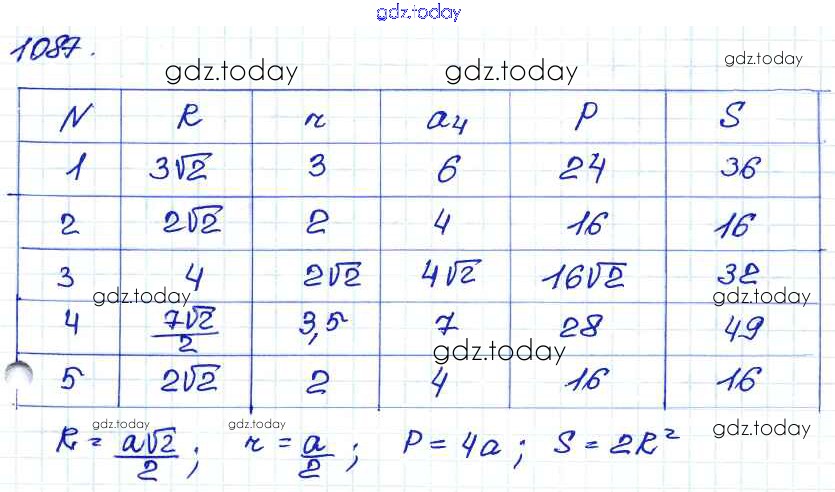 gdz.today
1087.
gdz.today gdz.today gdz.today
N R r a₄ P S
1 3√2 3 6 24 36
2 2√2 2 4 16 16
3 4 2√2 4√2 16√2 32
gdz.today gdz.today
4 7√2/2 3,5 7 28 49
gdz.today
5 2√2 2 4 16 16
gdz.today gdz.today gdz.today
R = a√2/2; r = a/2; P = 4a; S = 2R²